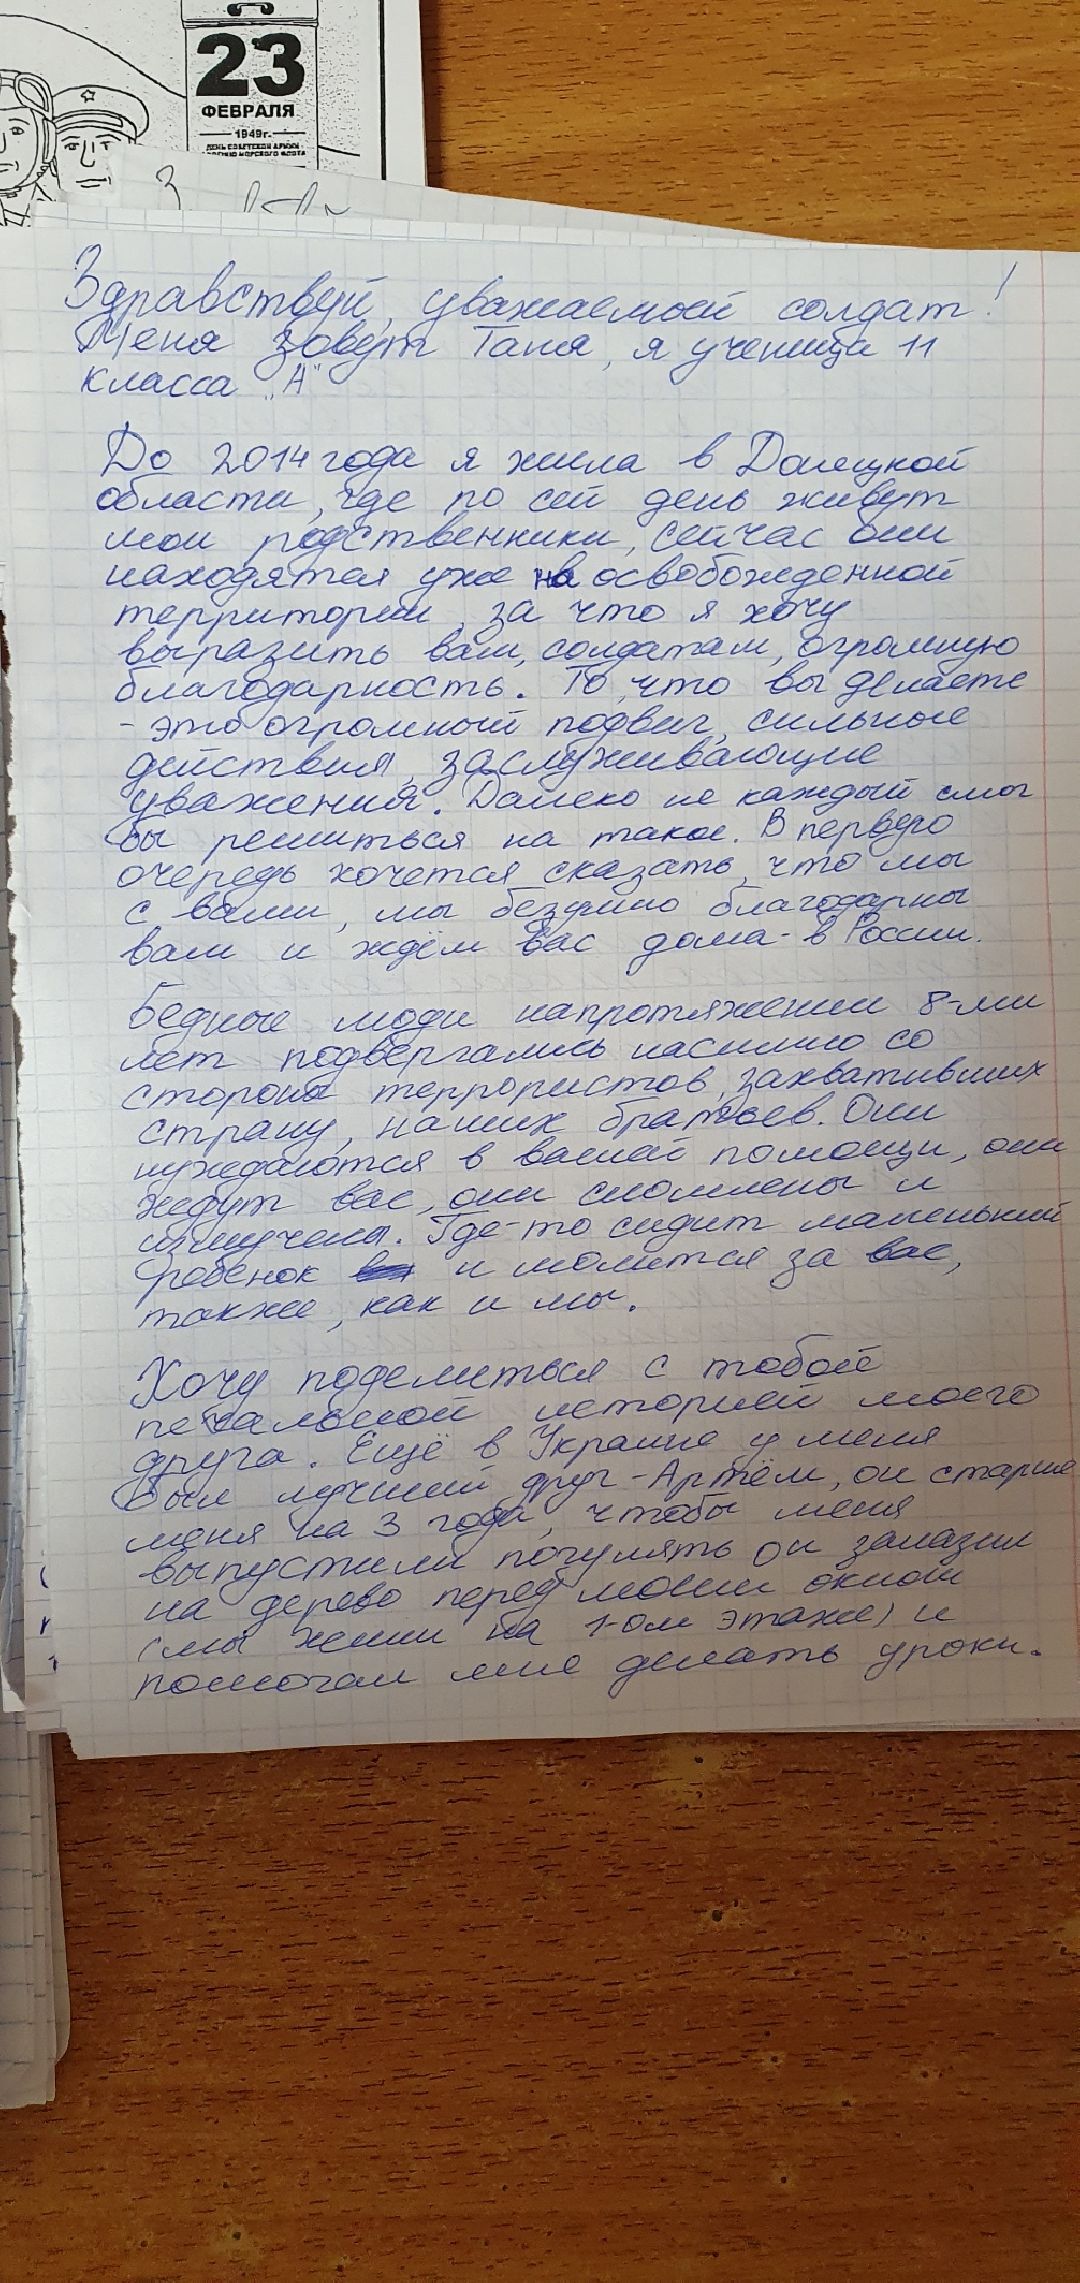 23
ФЕВРАЛЯ
1949г.
ДЕНЬ СОВЕТСКОЙ АРМИИ
Здравствуй, уважаемый солдат!
Меня зовут Таня, я ученица 11
класса „А"
До 2014 года я жила в Донецкой
области, где по сей день живут
мои родственники, сейчас они
находятся уже на освобожденной
территории, за что я хочу
выразить вам, солдатам, огромную
благодарность. То, что вы делаете
- это огромный подвиг, сильные
действия, заслуживающие
уважения. Далеко не каждый смог
бы решиться на такое. В первую
очередь хочется сказать, что мы
с вами, мы безумно благодарны
вам и ждём вас дома - в России.
Бедные люди напротяжении 8-ми
лет подвергались насилию со
стороны террористов, захвативших
страну, наших братьев. Они
нуждаются в вашей помощи, они
ждут вас, они сломлены и
измучены. Где-то сидит маленький
ребенок и молится за вас,
также, как и мы.
Хочу поделиться с тобой
печальной историей моего
друга. Ещё в Украине у меня
был лучший друг - Артём, он старше
меня на 3 года, чтобы меня
выпустили погулять он залазил
на дерево перед моим окном
(мы жили на 1-ом этаже) и
помогал мне делать уроки.